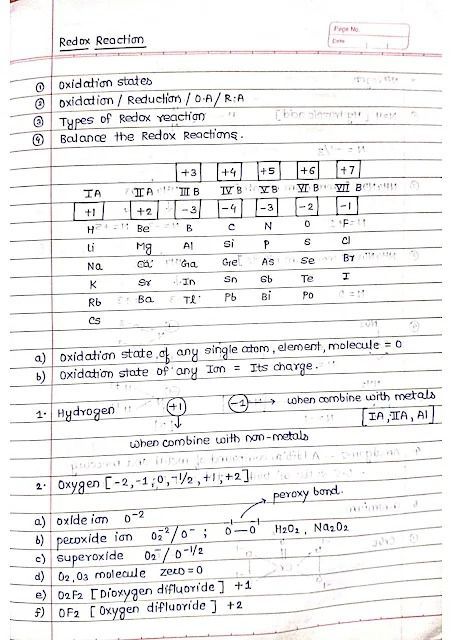 Page No.
Date
Redox Reaction
① Oxidation states
② Oxidation / Reduction / O.A / R.A
③ Types of Redox reaction
④ Balance the Redox Reactions.
+3 +4 +5 +6 +7
IA IIA III B IV B V B VI B VII B
+1 +2 -3 -4 -3 -2 -1
H Be B C N O F
Li Mg Al Si P S Cl
Na Ca Ga Ge As Se Br
K Sr In Sn Sb Te I
Rb Ba Tl Pb Bi Po
Cs
a) Oxidation state of any single atom, element, molecule = 0
b) Oxidation state of any Ion = Its charge.
1. Hydrogen +1 -1 → when combine with metals
[IA, IIA, Al]
when combine with non-metals
2. Oxygen [-2, -1, 0, -1/2, +1, +2]
peroxy bond.
a) oxide ion O⁻²
b) peroxide ion O₂⁻² / O⁻ ; O⁻¹—O⁻¹ H₂O₂, Na₂O₂
c) superoxide O₂⁻ / O⁻¹/²
d) O₂, O₃ molecule zero = 0
e) O₂F₂ [Dioxygen difluoride] +1
f) OF₂ [Oxygen difluoride] +2